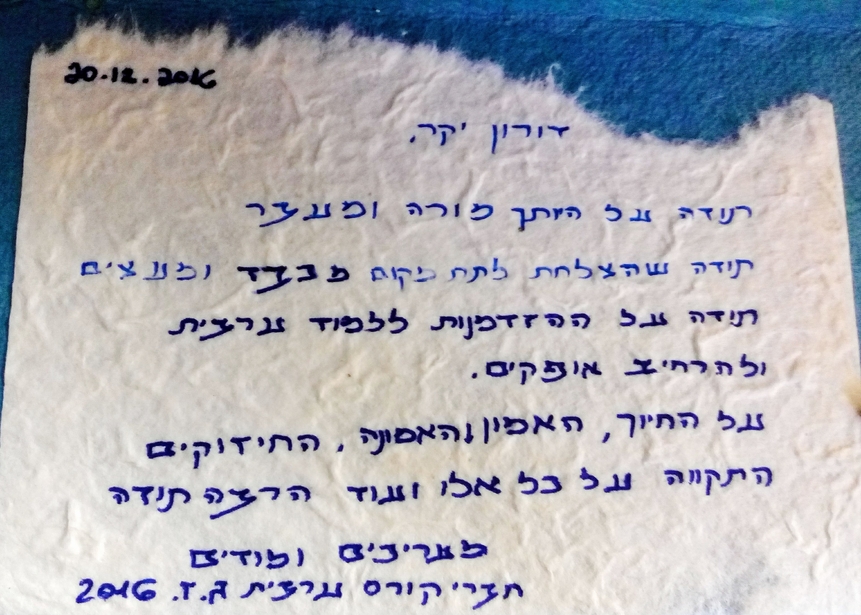 20.12.2016
דורון יקר,
תודה על היותך מורה ומעבר
תודה שהצלחת לתת מקום מכבד ומעצים
תודה על ההזדמנות ללמוד ערבית
ולהרחיב אופקים.
על החיוך, האמון והאמונה, החיזוקים
התקווה על כל אלו ועוד הרבה תודה
מעריכים ומודים
חברי קורס ערבית ג.ז. 2016